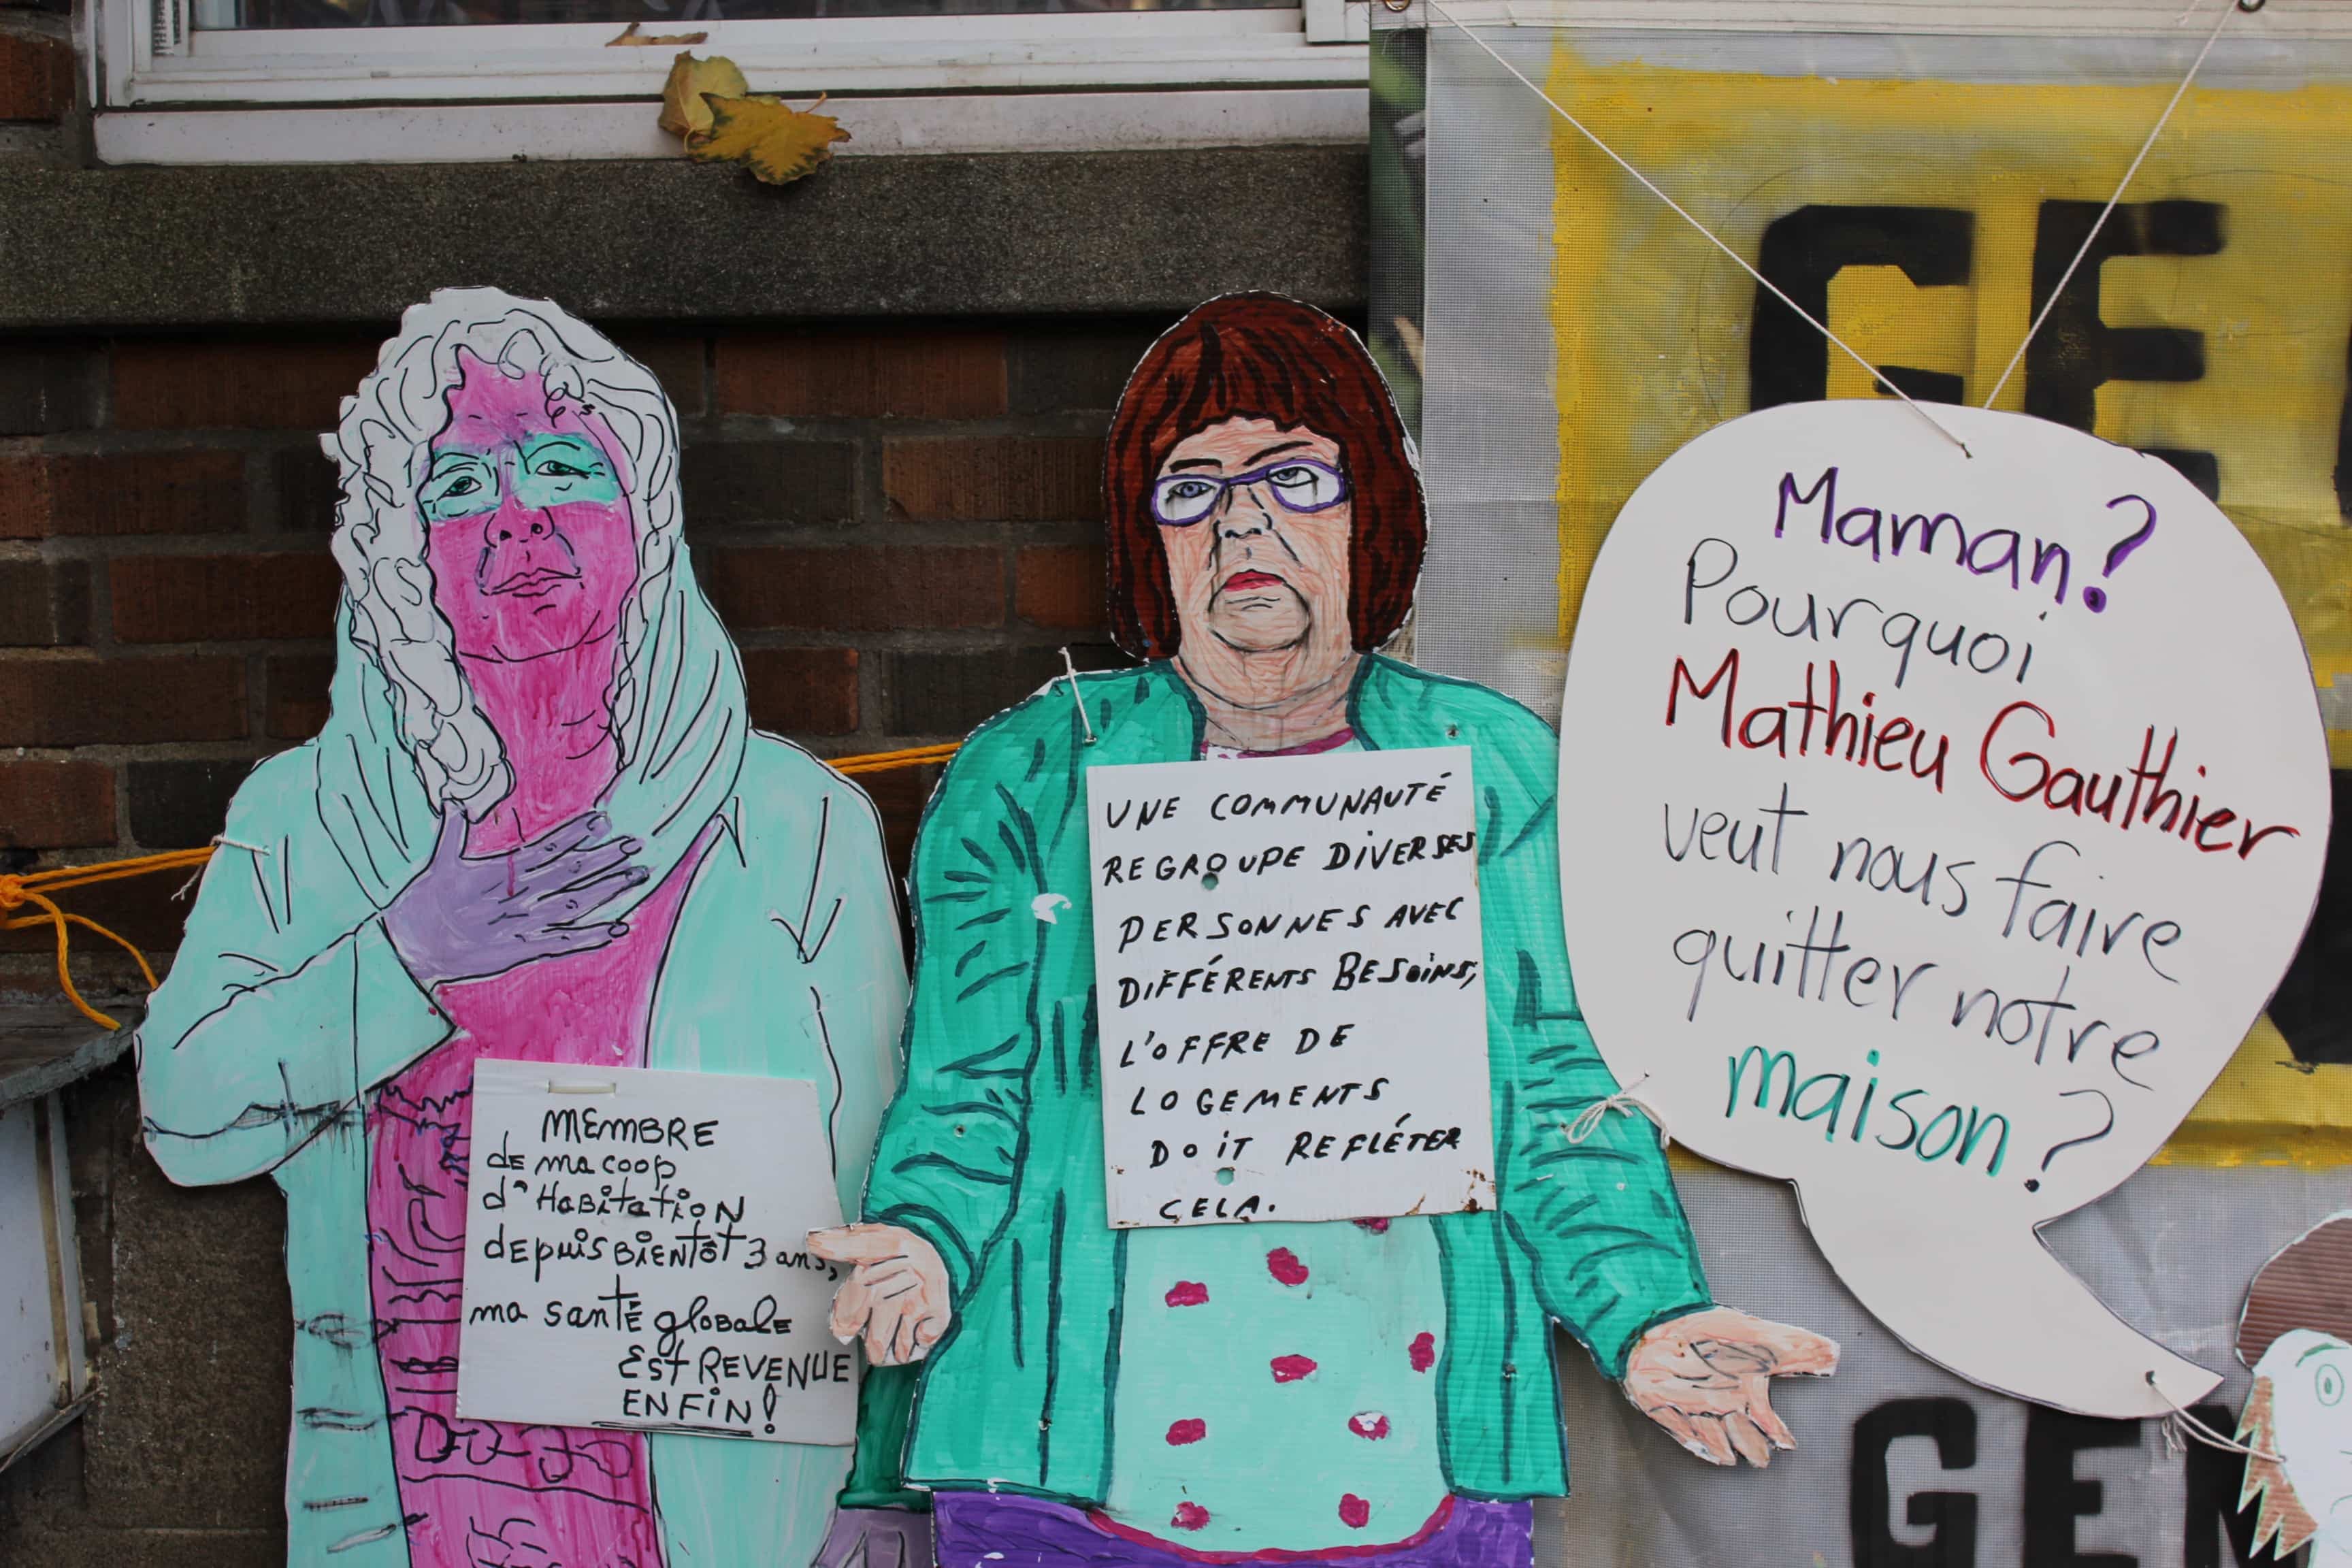 MEMBRE
de ma coop
d'HaBitatioN
dEpuis BiENtôt 3 ans,
ma santÉ gloBaLE
Est REVENUE
ENFiN!
UNE COMMUNAUTÉ
REGROUPE DIVERSES
PERSONNES AVEC
DIFFÉRENTS BESOINS,
L'OFFRE DE
LOGEMENTS
DOIT REFLÉTER
CELA.
Maman?
Pourquoi
Mathieu Gauthier
veut nous faire
quitter notre
maison?
GE
GEN